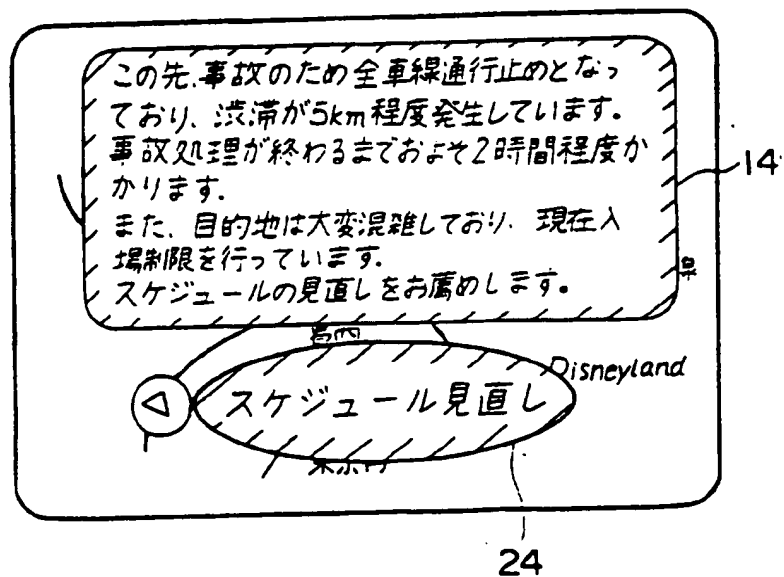 この先、事故のため全車線通行止めとなっ
ており、渋滞が5km程度発生しています。
事故処理が終わるまでおよそ2時間程度か
かります。
また、目的地は大変混雑しており、現在入
場制限を行っています。
スケジュールの見直しをお薦めします。
14
Disneyland
スケジュール見直し
24